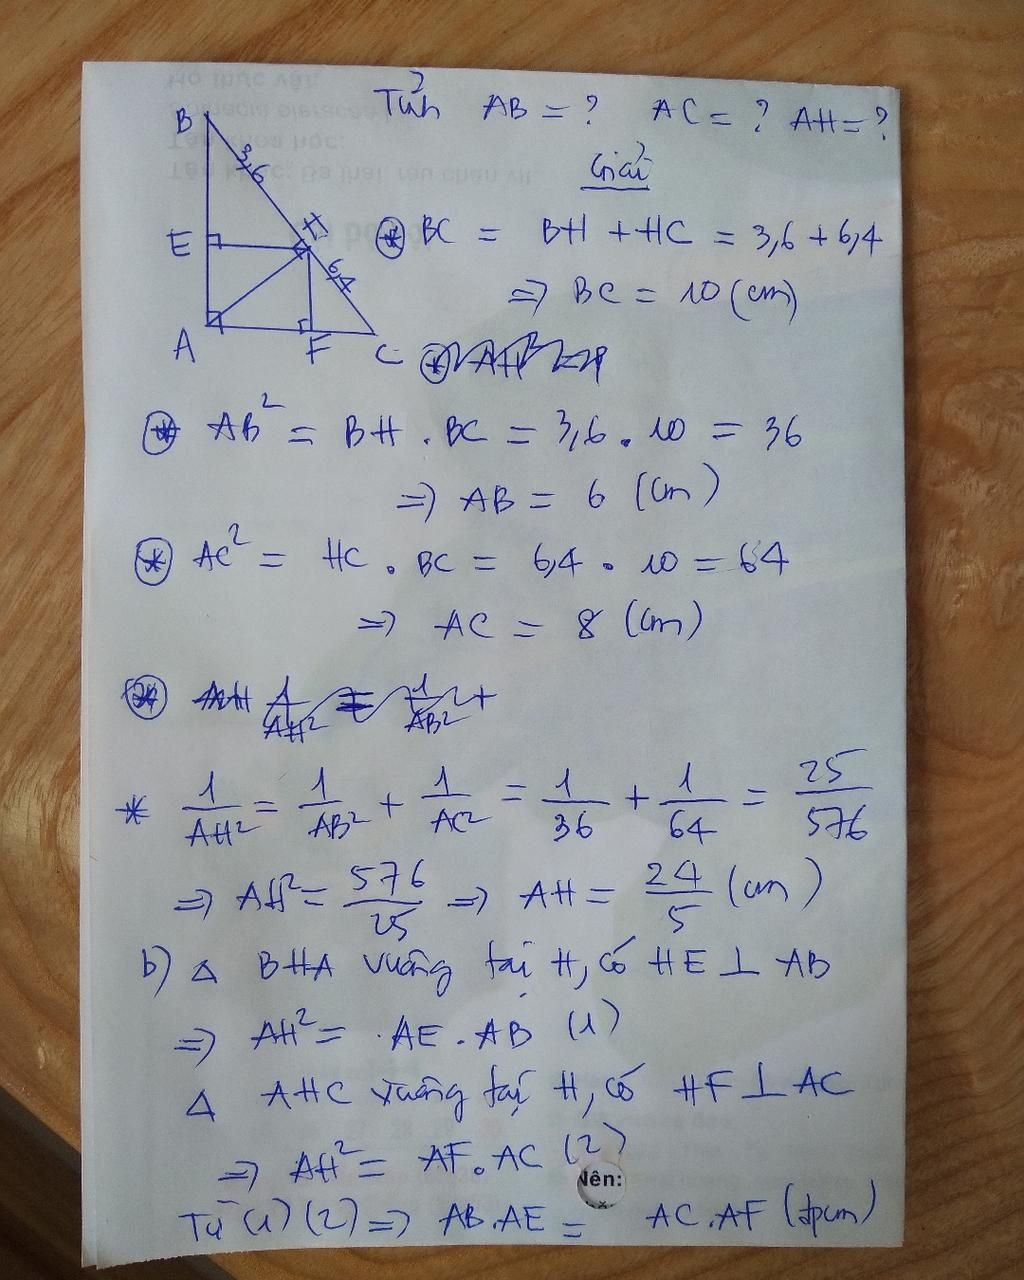 Tính AB = ? AC = ? AH = ?
Giải
B
3,6
H
E
6,4
A
F
C
* BC = BH + HC = 3,6 + 6,4
=> BC = 10 (cm)
* AB² = BH . BC = 3,6 . 10 = 36
=> AB = 6 (cm)
* AC² = HC . BC = 6,4 . 10 = 64
=> AC = 8 (cm)
* AH 1/AH² = 1/AB² +
* 1/AH² = 1/AB² + 1/AC² = 1/36 + 1/64 = 25/576
=> AH² = 576/25 => AH = 24/5 (cm)
b) Δ BHA vuông tại H, có HE ⊥ AB
=> AH² = AE . AB (1)
Δ AHC vuông tại H, có HF ⊥ AC
=> AH² = AF . AC (2)
Nên:
Từ (1) (2) => AB.AE = AC.AF (đpcm)